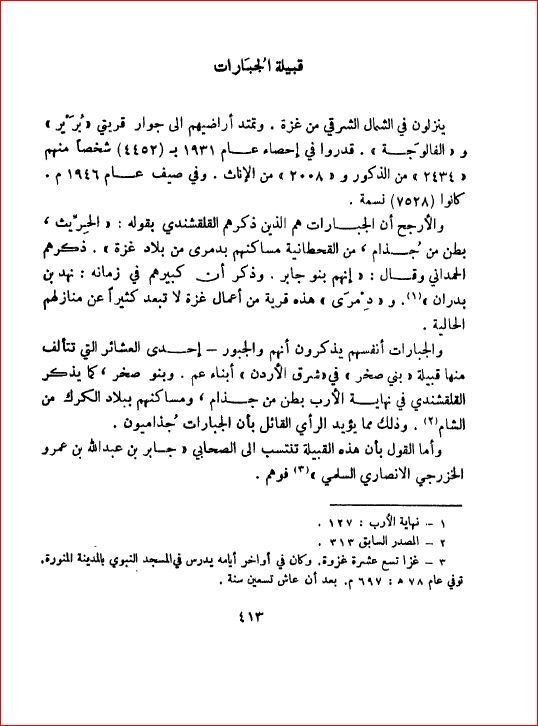 قبيلة الجبَارات
ينزلون في الشمال الشرقي من غزة . وتمتد أراضيهم الى جوار قريتي « بُرَيْر »
و « الفالوَجة » . قدروا في إحصاء عـام ١٩٣١ بـ (٤٤٥٢) شخصاً منهم
« ٢٤٣٤ » من الذكور و « ٢٠٠٨ » من الإناث . وفي صيف عـام ١٩٤٦ م .
كانوا (٧٥٢٨) نسمة .
والأرجح أن الجبـارات هم الذين ذكرهم القلقشندي بقوله : « الحِريّث ،
بطن من جُـذام ، من القحطانية مساكنهم بدمرى من بلاد غزة » . ذكـرهم
الحمداني وقـال : « إنهم بنو جابر . وذكر أن كبيرهم في زمانه : نهد بن
بدران » (١) . و « دِمْرَى » هذه قرية من أعمال غزة لا تبعد كثيراً عن منازلهم
الحالية .
والجبارات أنفسهم يذكرون أنهم والجبور – إحـدى العشائر التي تتألف
منها قبيلة « بني صخر » في « شرق الأردن » أبناء عم . وبنو صخر ، كما يذكر
القلقشندي في نهايـة الأرب بطن من جـذام ، ومساكنهم ببلاد الكرك من
الشام (٢) . وذلك مما يؤيد الرأي القائل بأن الجبارات جُذاميون .
وأما القول بأن هذه القبيلة تنتسب الى الصحابي « جـابر بن عبدالله بن عمرو
الخزرجي الانصاري السلمي » (٣) فوهم .
١ – نهاية الأرب : ١٢٧ .
٢ – المصدر السابق ٣١٣ .
٣ – غزا تسع عشرة غزوة. وكان في أواخر أيامه يدرس في المسجد النبوي بالمدينة المنورة.
توفي عام ٧٨ هـ : ٦٩٧ م. بعد أن عاش تسعين سنة .
٤١٣